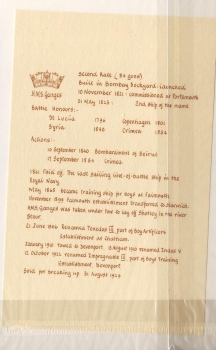 Second Rate (84 guns)
Built in Bombay Dockyard launched
H.M.S. Ganges
10 November 1821 - commissioned at Portsmouth
21 May 1823 - 2nd ship of the name
Battle Honours:-
St Lucia 1796 Copenhagen 1801
Syria 1840 Crimea 1854
Actions:-
10 September 1840 Bombardment of Beirut
17 September 1854 Crimea
1861 Paid off. The last sailing line-of-battle ship in the
Royal Navy
May 1865 became training ship for boys at Falmouth
November 1899 Falmouth establishment transferred to Harwich.
HMS Ganges was taken under tow to lay off Shotley in the river
Stour.
21 June 1906 Renamed Tenedos III, part of Boy Artificers
Establishment at Chatham.
January 1910 towed to Devonport. 13 August 1910 renamed Indus V
12 October 1922 renamed Impregnable III, part of Boys Training
Establishment Devonport
Sold for breaking up 31 August 1929